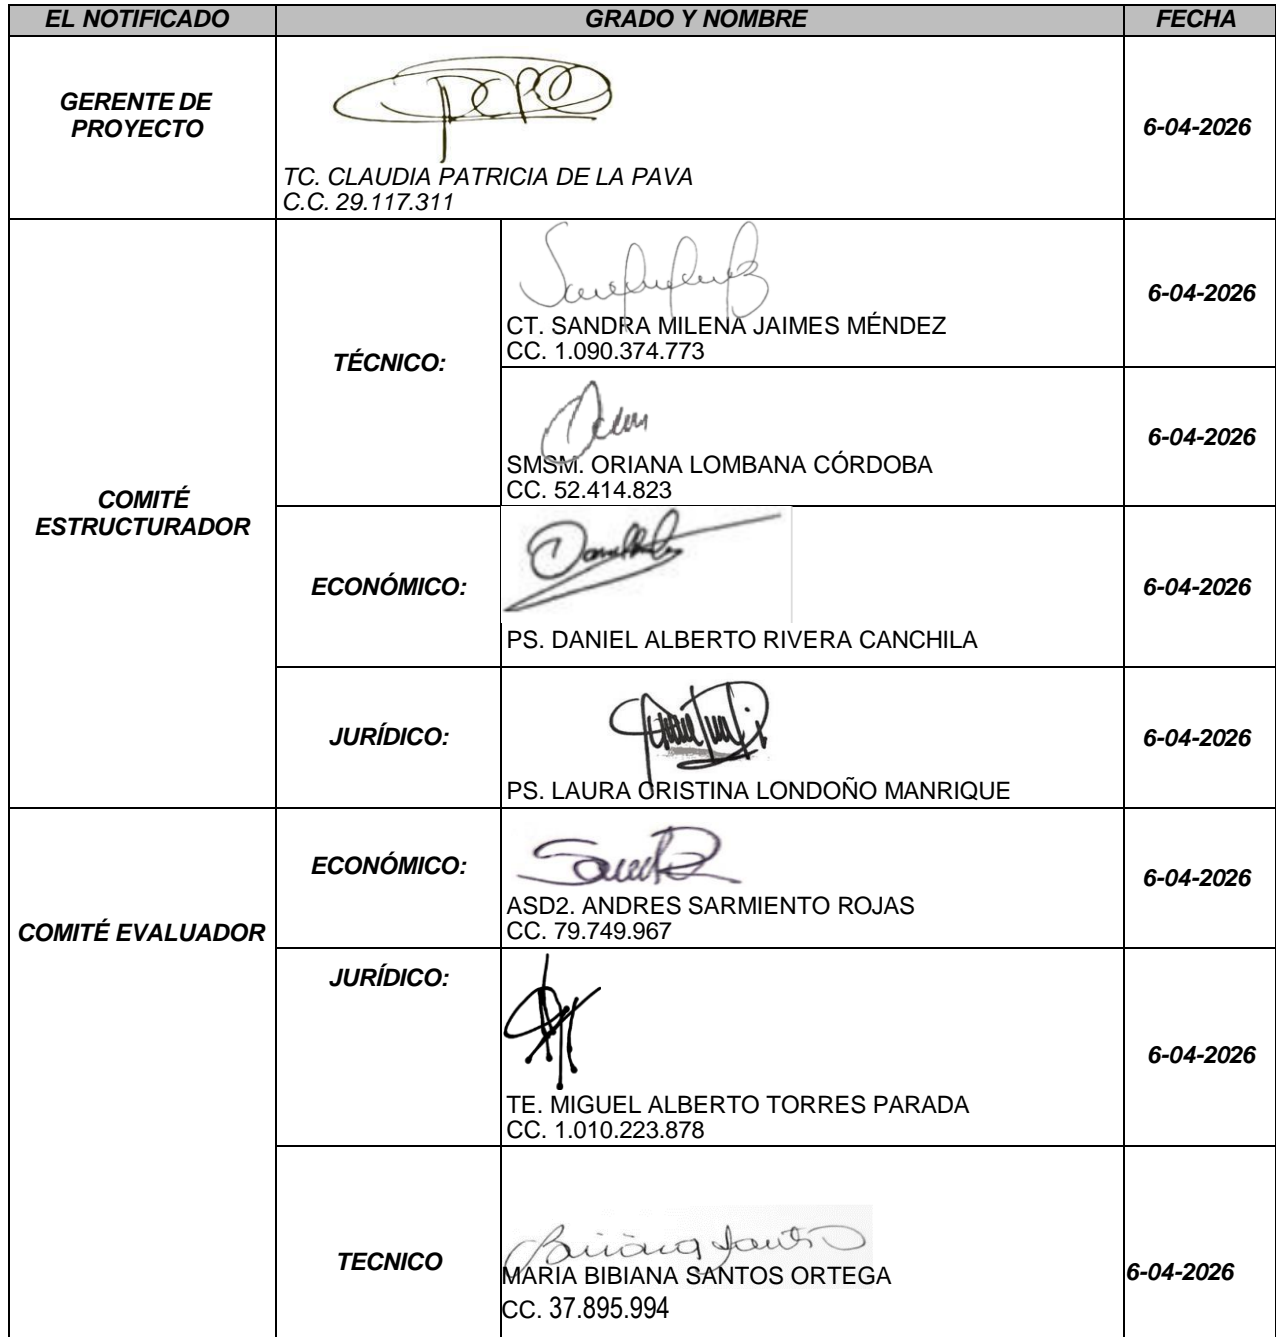 EL NOTIFICADO GRADO Y NOMBRE FECHA
GERENTE DE
PROYECTO
TC. CLAUDIA PATRICIA DE LA PAVA
C.C. 29.117.311
6-04-2026
COMITÉ
ESTRUCTURADOR
TÉCNICO:
CT. SANDRA MILENA JAIMES MÉNDEZ
CC. 1.090.374.773
6-04-2026
SMSM. ORIANA LOMBANA CÓRDOBA
CC. 52.414.823
6-04-2026
ECONÓMICO:
PS. DANIEL ALBERTO RIVERA CANCHILA
6-04-2026
JURÍDICO:
PS. LAURA CRISTINA LONDOÑO MANRIQUE
6-04-2026
COMITÉ EVALUADOR
ECONÓMICO:
ASD2. ANDRES SARMIENTO ROJAS
CC. 79.749.967
6-04-2026
JURÍDICO:
TE. MIGUEL ALBERTO TORRES PARADA
CC. 1.010.223.878
6-04-2026
TECNICO
MARIA BIBIANA SANTOS ORTEGA
CC. 37.895.994
6-04-2026